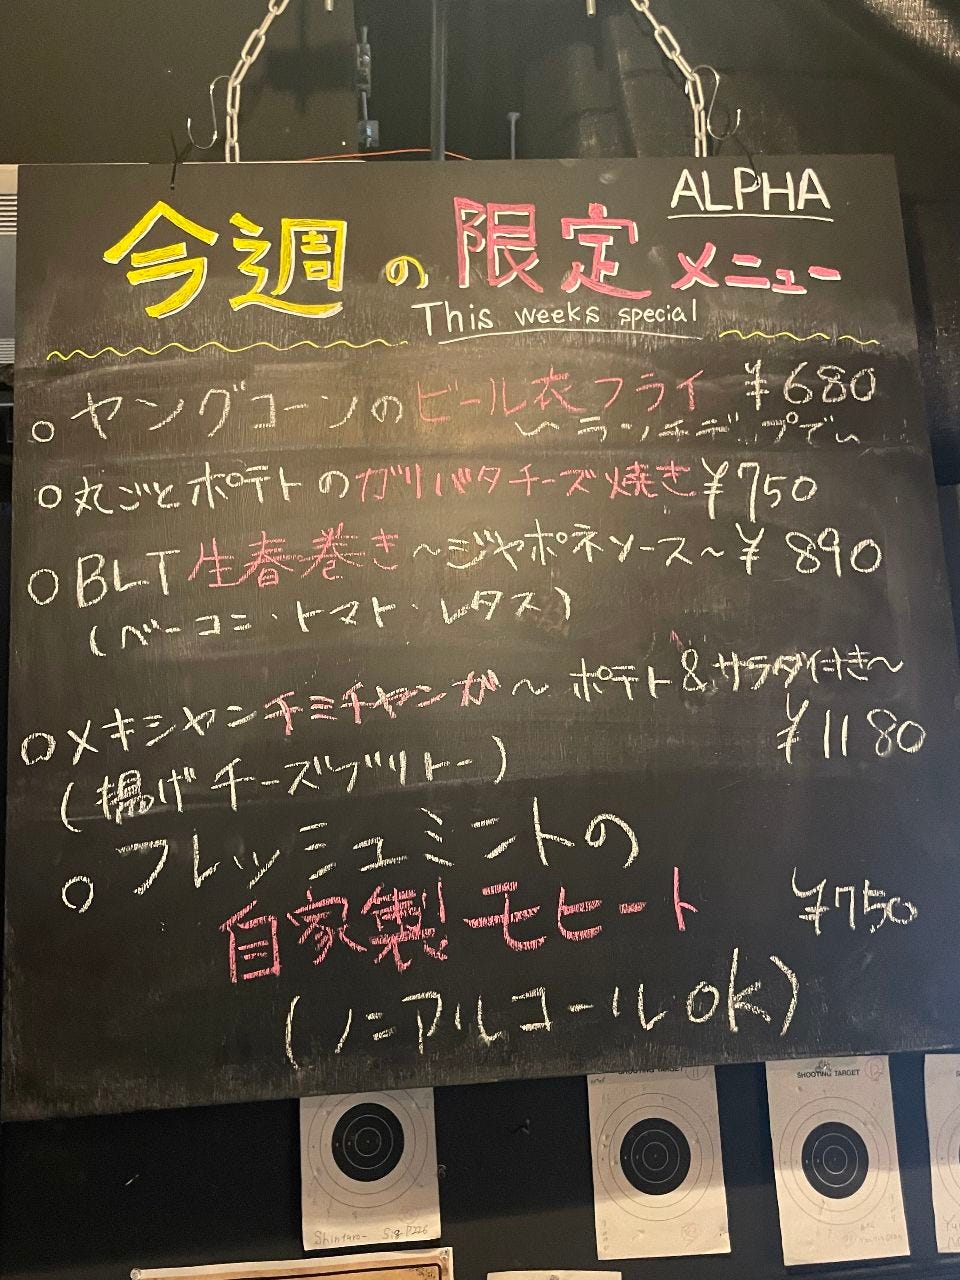 ALPHA
今週の限定メニュー
This weeks special
○ ヤングコーンのビール衣フライ ¥680
〜ランチディップで〜
○ 丸ごとポテトのガリバタチーズ焼き ¥750
○ BLT生春巻き〜ジャポネソース〜 ¥890
(ベーコン・トマト・レタス)
○ メキシャンチミチャンガ〜ポテト&サラダ付き〜
¥1180
(揚げチーズブリトー)
○ フレッシュミントの
自家製モヒート ¥750
(ノンアルコールOK)
SHOOTING TARGET
SHOOTING TARGET
Shintaro- Sig P226